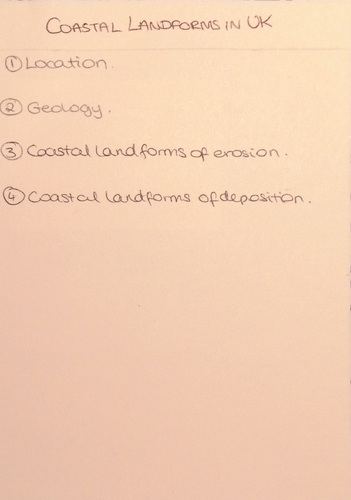 COASTAL LANDFORMS IN UK
① Location.
② Geology.
③ Coastal landforms of erosion.
④ Coastal landforms of deposition.